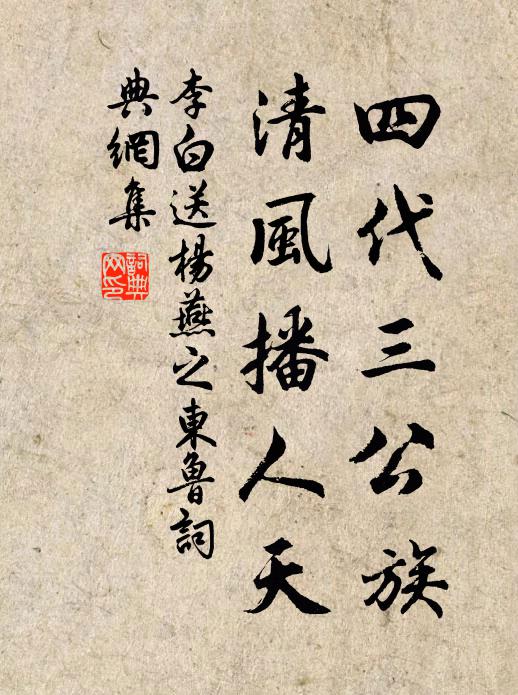 四代三公族
清風播人天
李白送楊燕之東魯詞
典網集
詞典网印